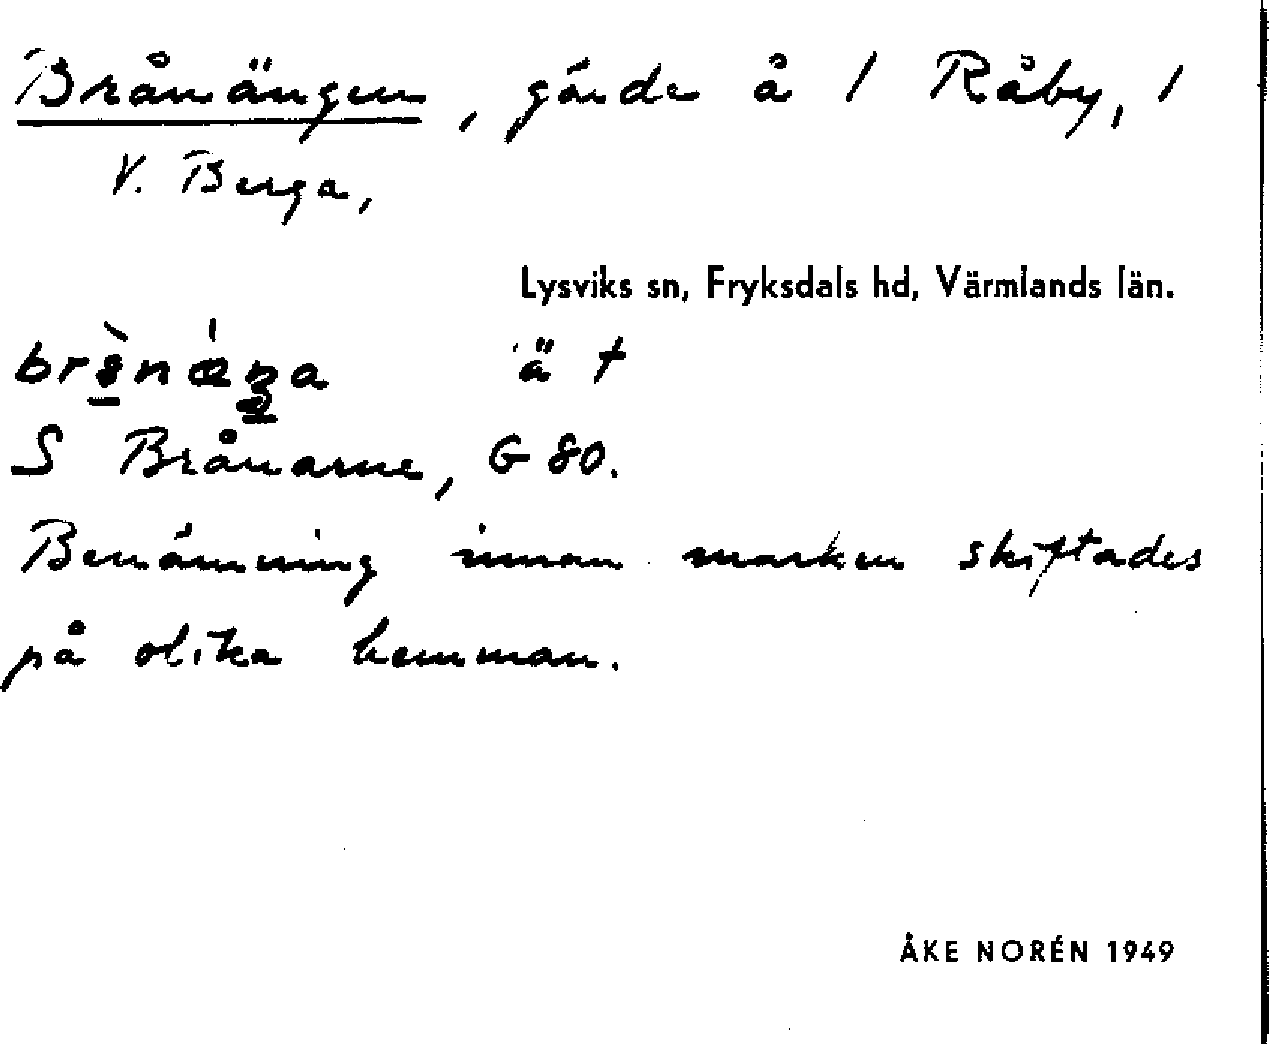 Brånängen, gärde å 1 Råby, 1
V. Berga,
Lysviks sn, Fryksdals hd, Värmlands län.
ä t
S Brånarne, G 80.
Benämning innan marken skiftades
på olika hemman.
ÅKE NORÉN 1949